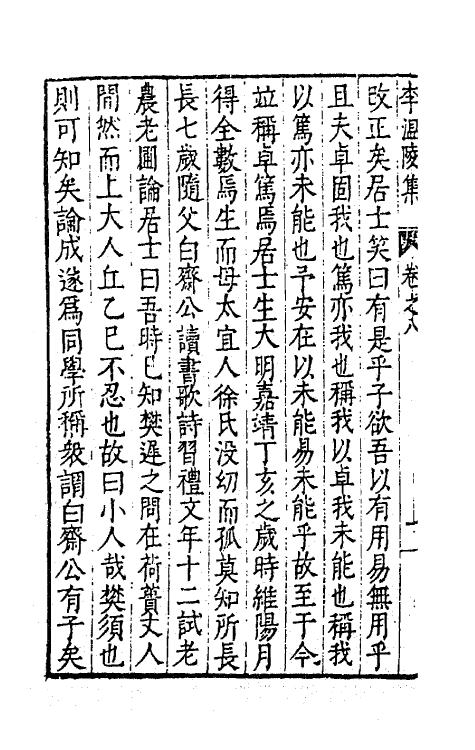 李温陵集 卷之八
改正矣居士笑曰有是乎子欲吾以有用易無用乎
且夫卓固我也篤亦我也稱我以卓我未能也稱我
以篤亦未能也予安在以未能易未能乎故至于今
竝稱卓篤焉居士生大明嘉靖丁亥之歲時維陽月
得全數焉生而母太宜人徐氏没幼而孤莫知所長
長七歲隨父白齋公讀書歌詩習禮文年十二試老
農老圃論居士曰吾時已知樊遲之問在荷蕢丈人
間然而上大人丘乙已不忍也故曰小人哉樊須也
則可知矣論成遂爲同學所稱衆謂白齋公有子矣